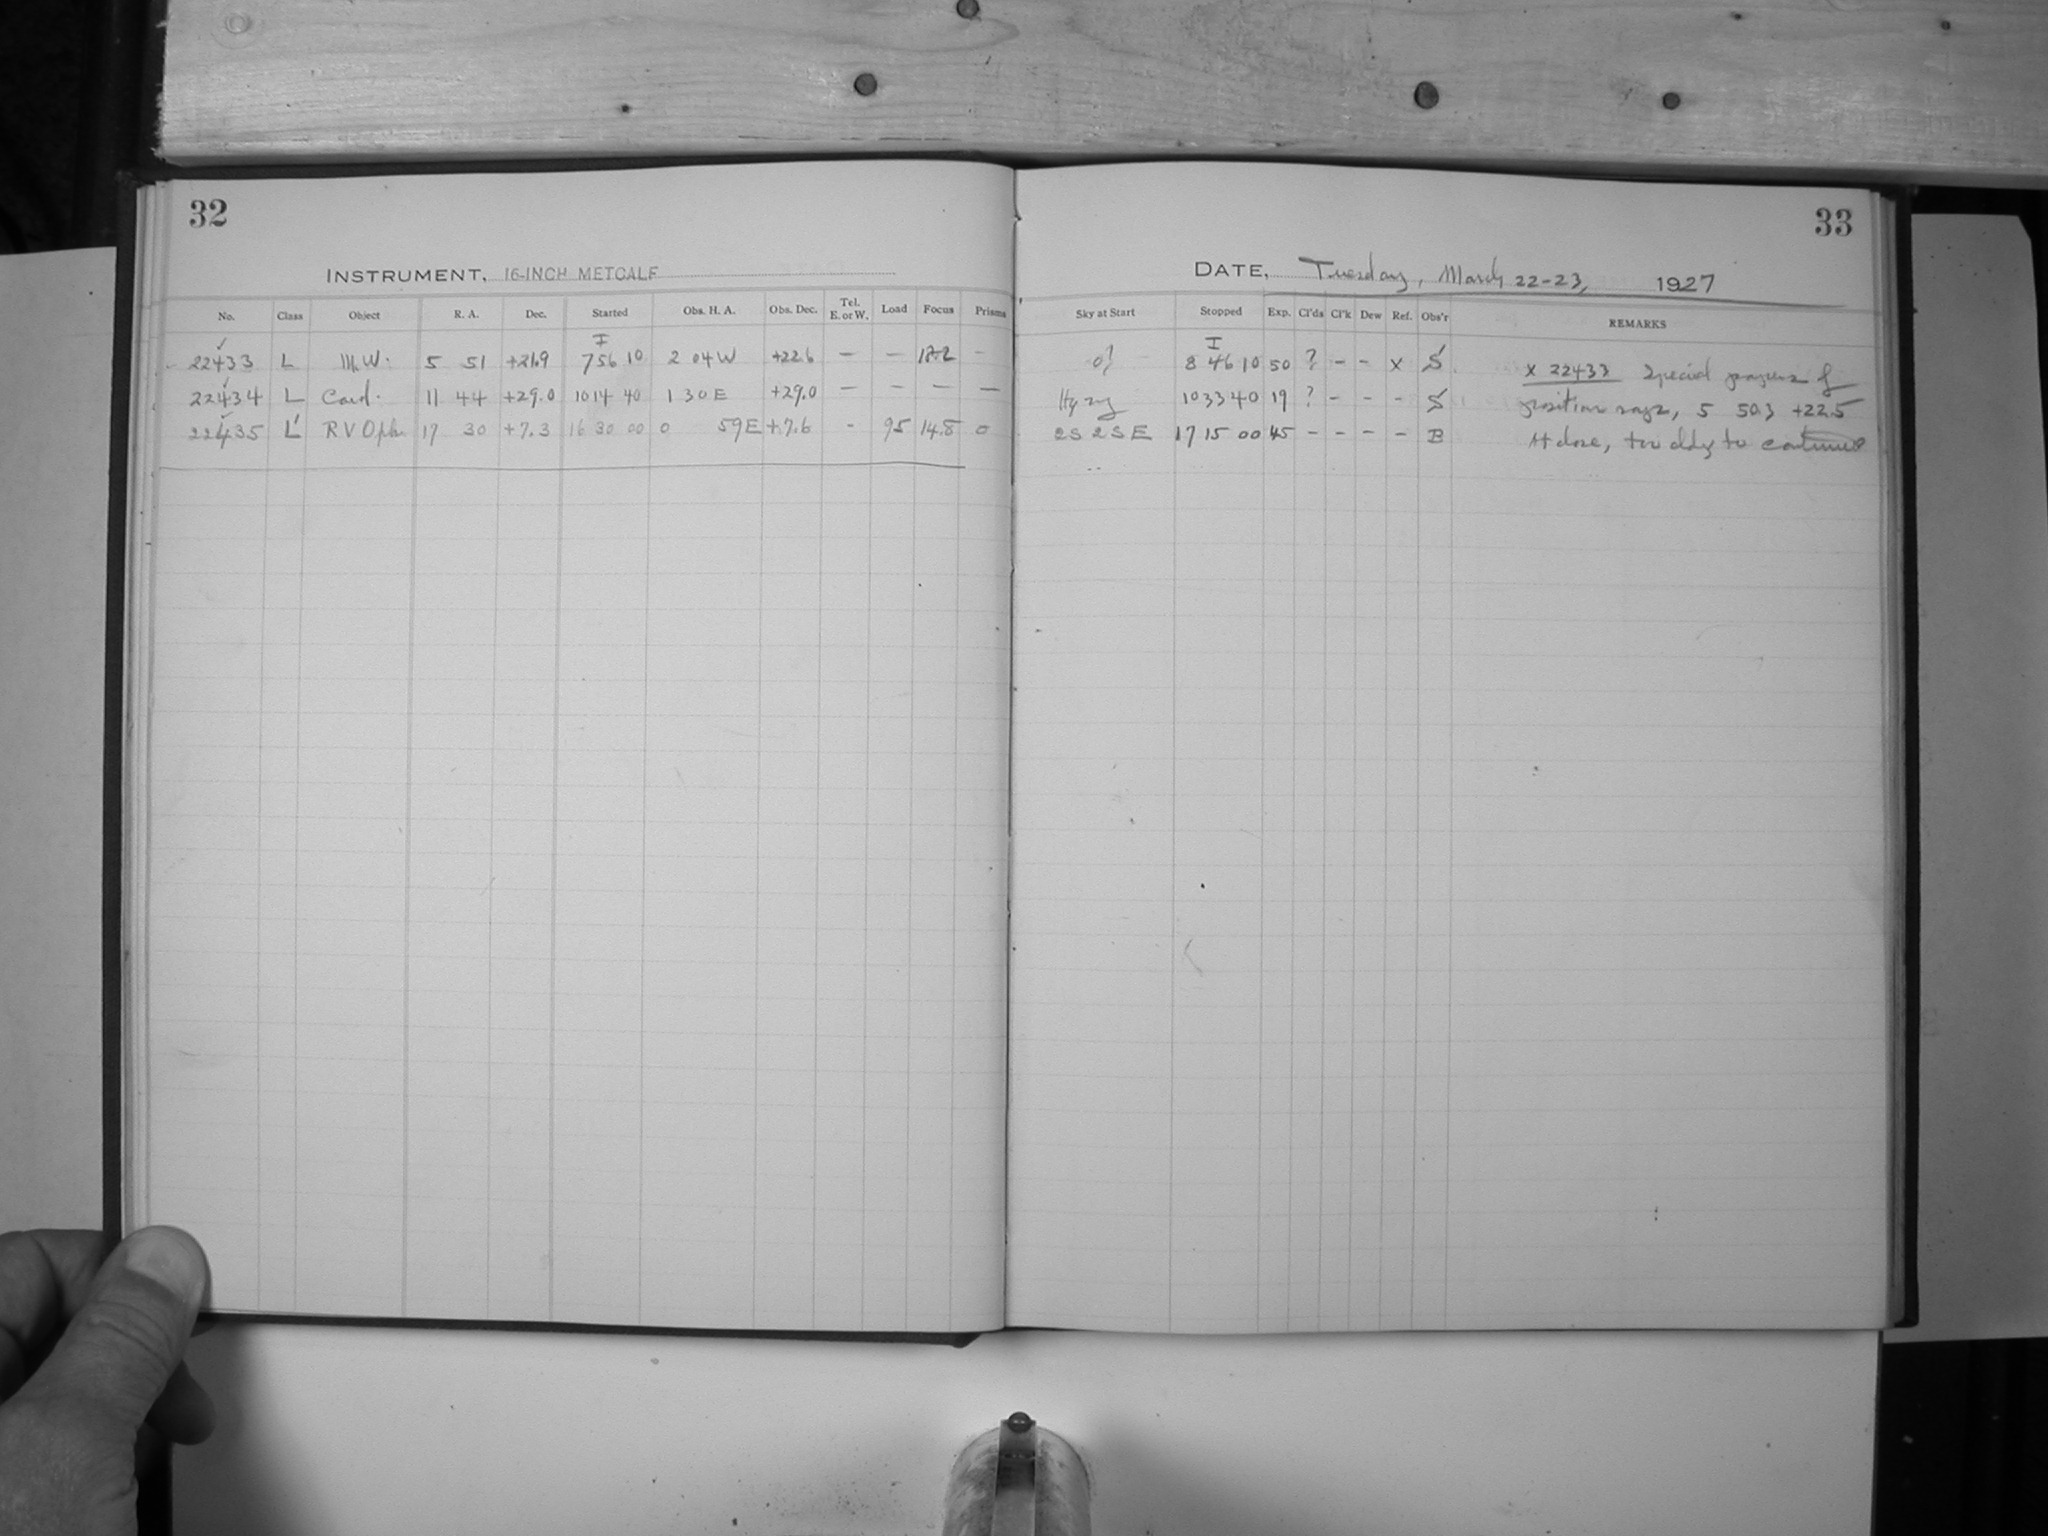 32
33
INSTRUMENT, 16-INCH METCALF
DATE, Tuesday, March 22-23, 1927
No. Class Object R. A. Dec. Started Obs. H. A. Obs. Dec. Tel. E. or W. Load Focus Prisms
Sky at Start Stopped Exp. Cl'ds Cl'k Dew Ref. Obs'r REMARKS
I
I
22433 L M.W. 5 51 +21.9 7 56 10 2 04 W +22.6 — — —
8 46 10 50 ? - - x S x 22433 Special
22434 L Card. 11 44 +29.0 10 14 40 1 30 E +29.0 — — — —
Hazy 10 33 40 19 ? - - - S position 5 50.3 +22.5
22435 L' RV Oph. 17 30 +7.3 16 30 00 0 59 E +7.6 - 95 14.8 0
2S 2S E 17 15 00 45 - - - - B At close, too cldy to continue